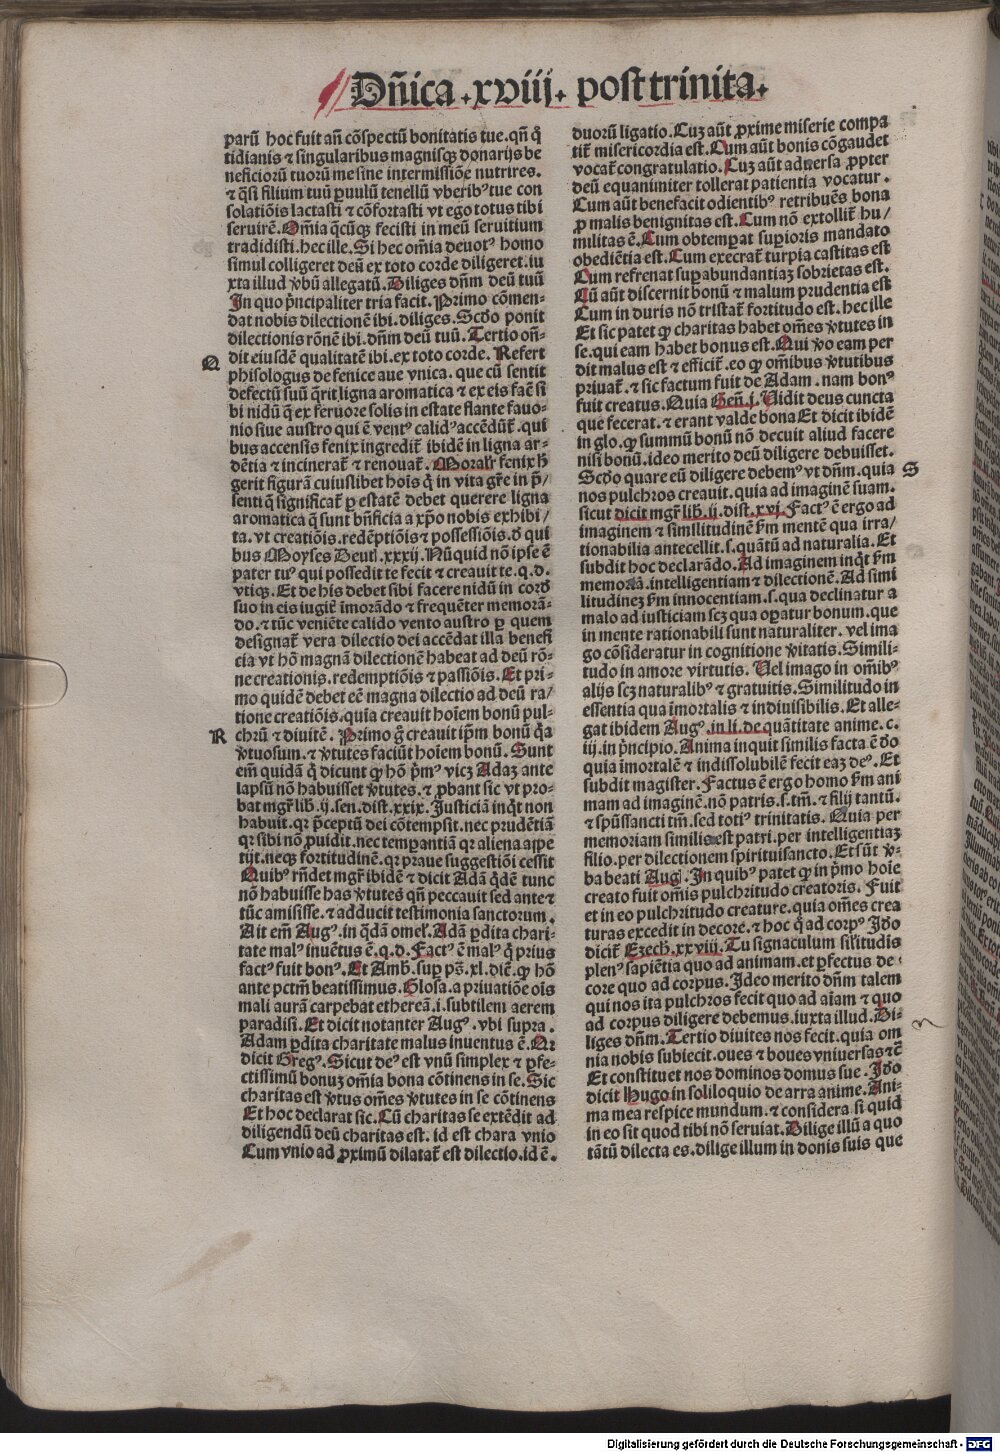 Dñica .xviij. post trinita.
parũ hoc fuit añ cõspectũ bonitatis tue. qñ q̃
tidianis ⁊ singularibus magnisqȝ donarijs be
neficiorũ tuorũ me sine intermissiõe nutrires.
⁊ q̃si filium tuũ ꝑuulũ tenellũ vberibꝰ tue con
solatiõis lactasti ⁊ cõfortasti vt ego totus tibi
seruirẽ. Oĩa q̃cũqȝ fecisti in meũ seruitium
tradidisti. hec ille. Si hec om̃ia deuotꝰ homo
simul colligeret deũ ex toto corde diligeret. iu
xta illud v̾bũ allegatũ. Diliges dñm deũ tuũ
In quo p̃ncipaliter tria facit. Primo cõmen-
dat nobis dilectionẽ ibi. diliges. Scďo ponit
dilectionis rõnẽ ibi. dñm deũ tuũ. Tertio oñ-
dit eiusdẽ qualitatẽ ibi. ex toto corde. Refert
Q
phisologus de fenice aue vnica. que cũ sentit
defectũ suũ q̃rit ligna aromatica ⁊ ex eis facẽ si
bi nidũ q̃ ex feruore solis in estate flante fauo-
nio siue austro qui ẽ ventꝰ calidꝰ accẽdũt̃. qui
bus accensis fenix ingredit̃ ibidẽ in ligna ar-
dẽtia ⁊ incinerat̃ ⁊ renouat̃. Moralr̃ fenix h̃
gerit figurã cuiuslibet hoĩs q̃ in vita gr̃e in p̃/
senti q̃ significat̃ ꝑ estatẽ debet querere ligna
aromatica q̃ sunt bñficia a xp̃o nobis exhibi/
ta. vt creatiõis. redẽptiõis ⁊ possessiõis. ď qui
bus Moyses Deut̃. xxxij. Nũquid nõ ipse ẽ
pater tuꝰ qui possedit te fecit ⁊ creauit te. q. d.
vtiqȝ. Et de his debet sibi facere nidũ in cord̾
suo in eis iugit̾ ĩmorãdo ⁊ frequẽter memorã-
do. ⁊ tũc veniẽte calido vento austro ꝑ quem
designat̃ vera dilectio dei accẽdat illa benefi
cia vt hõ magnã dilectionẽ habeat ad deũ rõ-
ne creationis. redemptiõis ⁊ passiõis. Et pri-
mo quidẽ debet eẽ magna dilectio ad deũ ra/
tione creatiõis. quia creauit hoĩem bonũ pul-
R
chrũ ⁊ diuitẽ. Primo g̃ creauit ip̃m bonũ q̃a
v̾tuosum. ⁊ v̾tutes faciũt hoĩem bonũ. Sunt
em̃ quidã q̃ dicunt ꝙ hõ p̃mꝰ vicȝ Adaȝ ante
lapsũ nõ habuisset v̾tutes. ⁊ ꝓbant sic vt pro-
bat mgr̃ lib̃. ij. sen. dist. xxix. Justiciã inq̃t non
habuit. qꝛ p̃ceptũ dei cõtempsit. nec prudẽtiã
qꝛ sibi nõ ꝓuidit. nec temꝑantiã qꝛ aliena appe
tijt. neqȝ fortitudinẽ. qꝛ praue suggestiõi cessit
Quibꝰ rñdet mgr̃ ibidẽ ⁊ dicit Adã q̃dẽ tunc
nõ habuisse has v̾tutes qñ peccauit sed ante ⁊
tũc amisisse. ⁊ adducit testimonia sanctorum.
Ait em̃ Augꝰ. in q̃dã omel̃. Adã ꝑdita chari-
tate malꝰ inuẽtus ẽ. q. d. Factꝰ ẽ malꝰ q̃ prius
factꝰ fuit bonꝰ. Et Amb̃. suꝑ ps̃. xl. dic̃. ꝙ hõ
ante pctm̃ beatissimus. Glosa. a priuatiõe oĩs
mali aurã carpebat etheream̃. i. subtilem aerem
paradisi. Et dicit notanter Augꝰ. vbi supra.
Adam ꝑdita charitate malus inuentus ẽ. Qꝛ
dicit Gregꝰ. Sicut deꝰ est vnũ simplex ⁊ ꝑfe-
ctissimũ bonuȝ om̃ia bona cõtinens in se. Sic
charitas est v̾tus om̃es v̾tutes in se cõtinens
Et hoc declarat sic. Cũ charitas se extẽdit ad
diligendũ deũ charitas est. id est chara vnio
Cum vnio ad ꝓximũ dilatat̃ est dilectio. id ẽ.
duorũ ligatio. Cuȝ aũt ꝓxime miserie compa
tit̃ misericordia est. Cum aũt bonis cõgaudet
vocat̃ congratulatio. Cuȝ aũt aduersa ꝓpter
deũ equanimiter tollerat patientia vocatur.
Cum aũt benefacit odientibꝰ retribuẽs bona
ꝓ malis benignitas est. Cum nõ extollit̃ hu/
militas ẽ. Cum obtemꝑat suꝑioris mandato
obediẽtia est. Cum execrat̃ turpia castitas est
Cum refrenat suꝑabundantiaȝ sobrietas est.
Cũ aũt discernit bonũ ⁊ malum prudentia est
Cum in duris nõ tristat̃ fortitudo est. hec ille
Et sic patet ꝙ charitas habet om̃es v̾tutes in
se. qui eam habet bonus est. Qui v̾o eam per
dit malus est ⁊ efficit̃. eo ꝙ om̃ibus v̾tutibus
priuat̃. ⁊ sic factum fuit de Adam. nam bonꝰ
fuit creatus. Quia Geñ. j. Vidit deus cuncta
que fecerat. ⁊ erant valde bona Et dicit ibidẽ
in glo. ꝙ summũ bonũ nõ decuit aliud facere
nisi bonũ. ideo merito deũ diligere debuisset.
Scďo quare eũ diligere debemꝰ vt dñm. quia
S
nos pulchros creauit. quia ad imaginẽ suam.
sicut dicit mgr̃ lib̃. ij. dist. xvj. Factꝰ ẽ ergo ad
imaginem ⁊ similitudinẽ ẜm mentẽ qua irra/
tionabilia antecellit. s. quãtũ ad naturalia. Et
subdit hoc declarãdo. Ad imaginem inq̃t ẜm
memoriã. intelligentiam ⁊ dilectionẽ. Ad simi
litudineȝ ẜm innocentiam. s. qua declinatur a
malo ad iusticiam scȝ qua oꝑatur bonum. que
in mente rationabili sunt naturaliter. vel ima
go cõsideratur in cognitione v̾itatis. Simili-
tudo in amore virtutis. Uel imago in om̃ibꝰ
alijs scȝ naturalibꝰ ⁊ gratuitis. Similitudo in
essentia qua ĩmortalis ⁊ indiuisibilis. Et alle-
gat ibidem Augꝰ. in li. de quãtitate anime. c.
iij. in p̃ncipio. Anima inquit similis facta ẽ ďo
quia ĩmortalẽ ⁊ indissolubilẽ fecit eaȝ deꝰ. Et
subdit magister. Factus ẽ ergo homo ẜm ani
mam ad imaginẽ. nõ patris. s. tm̃. ⁊ filij tantũ.
⁊ sp̃ussancti tm̃. sed totiꝰ trinitatis. Quia per
memoriam similis est patri. per intelligentiaȝ
filio. per dilectionem spirituisancto. Et sũt v̾-
ba beati Aug. In quibꝰ patet ꝙ in p̃mo hoĩe
creato fuit om̃is pulchritudo creatoris. Fuit
et in eo pulchritudo creature. quia om̃es crea
turas excedit in decore. ⁊ hoc q̃ ad corpꝰ. Jďo
dicit̃ Ezech̃. xxviij. Tu signaculum sil̃itudis
plenꝰ sapiẽtia quo ad animam. et ꝑfectus de-
core quo ad corpus. Jdeo merito dñm talem
qui nos ita pulchros fecit quo ad aĩam ⁊ quo
ad corpus diligere debemus. iuxta illud. Di-
liges dñm. Tertio diuites nos fecit. quia om
nia nobis subiecit. oues ⁊ boues vniuersas ⁊c̃
Et constituet nos dominos domus sue. Jďo
dicit Hugo in soliloquio de arra anime. Ani-
ma mea respice mundum. ⁊ considera si quid
in eo sit quod tibi nõ seruiat. Dilige illũ a quo
tãtũ dilecta es. dilige illum in donis suis que
Digitalisierung gefördert durch die Deutsche Forschungsgemeinschaft - DFG